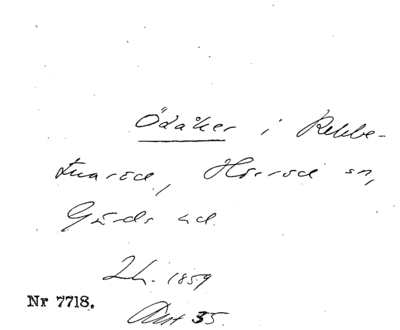 Ödåker i Rebbe-
tuaröd, Hörröd sn,
Gärds hd.
Lh. 1859
Nr 7718.
Akt 35.